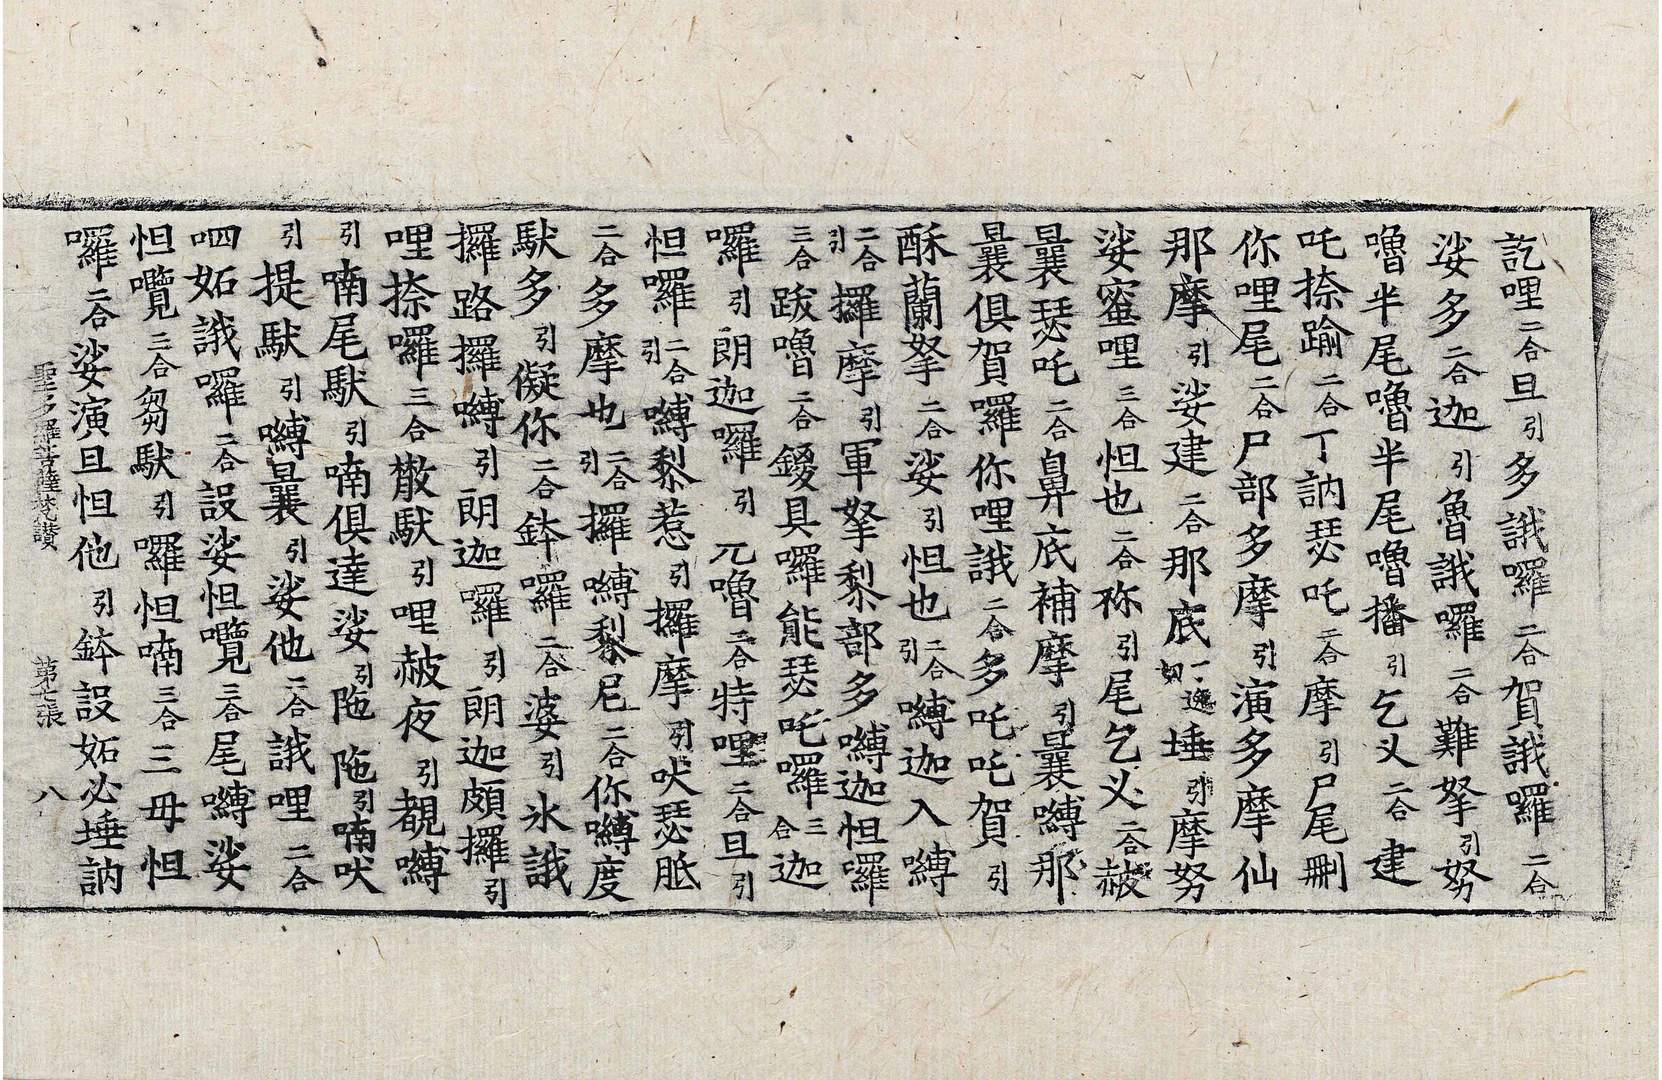 訖哩二合旦引多誐囉二合賀誐囉二合
娑多二合迦引魯誐囉二合難拏引努
嚕半尾嚕半尾嚕播引乞义二合建
吒捺踰二合丁訥瑟吒二合摩引尸尾刪
你哩尾二合尸部多摩引演多摩仙
那摩引娑建二合那底一逸埵引摩努
娑蜜哩三合怛也二合祢引尾乞义二合赧
曩瑟吒二合鼻底補摩引曩嚩那
曩俱賀囉你哩誐二合多吒吒賀引
酥蘭拏二合娑引怛也二合引嚩迦入嚩
二合引攞摩引軍拏黎部多嚩迦怛囉
三合跋嚕二合鑁具囉能瑟吒囉三合迦
囉引朗迦囉引兀嚕二合特哩二合旦引
怛囉二合引嚩黎惹引攞摩引吠瑟胝
二合多摩也二合引攞嚩黎尼二合你嚩度
馱多引儗你二合鉢囉二合婆引氷誐
攞路攞嚩引朗迦囉引朗迦頗攞引
哩捺囉三合散馱引哩赧夜引覩嚩
引喃尾馱引喃俱達娑引陁陁引喃吠
引提馱引嚩曩引娑他二合誐哩二合
呬妬誐囉二合設娑怛囕三合尾嚩娑
怛囕三合芻馱引囉怛喃三合三毋怛
囉二合娑演旦怛他引鉢設妬必埵訥
聖多羅菩薩梵讚 第七張 八